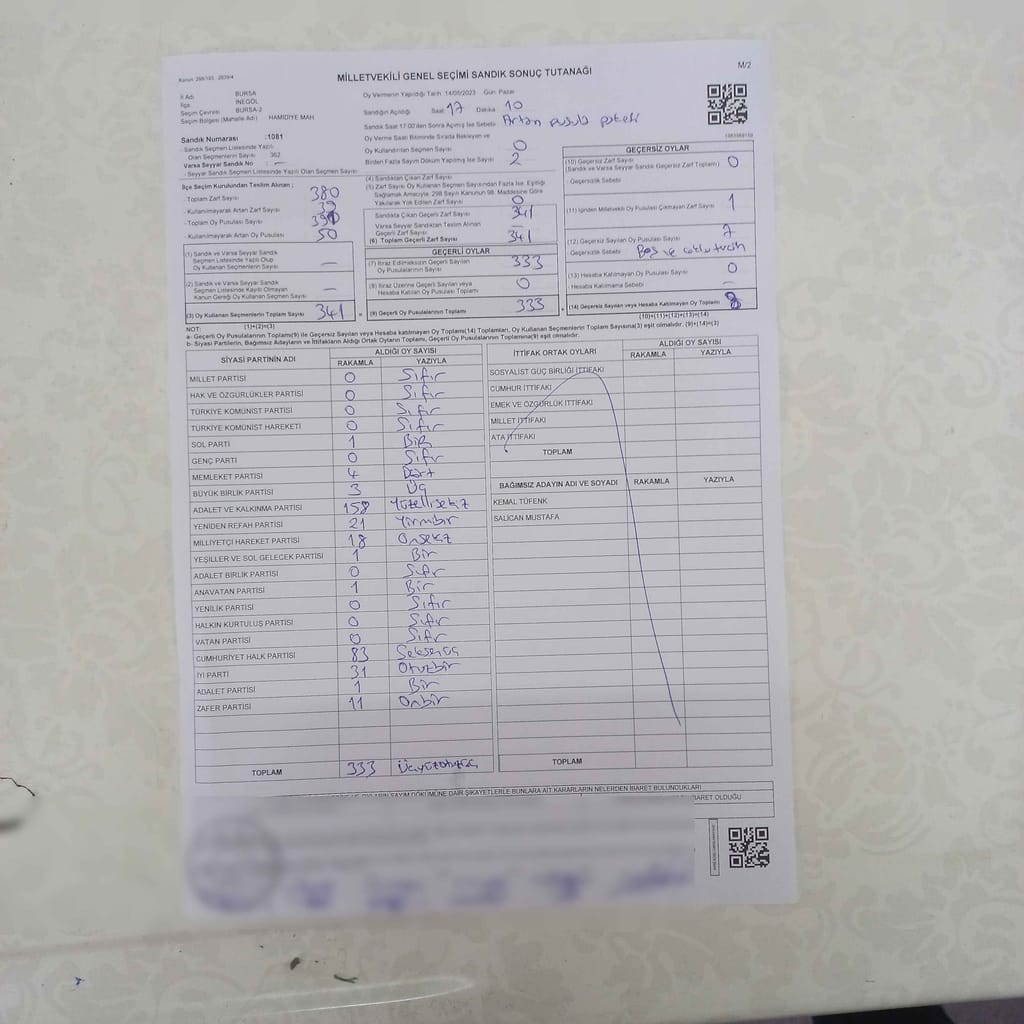 Kanun: 298/105 - 2839/4
MİLLETVEKİLİ GENEL SEÇİMİ SANDIK SONUÇ TUTANAĞI
M/2
İl Adı BURSA
İlçe İNEGÖL
Seçim Çevresi BURSA-2
Seçim Bölgesi (Mahalle Adı) HAMİDİYE MAH
Sandık Numarası :1081
- Sandık Seçmen Listesinde Yazılı
Olan Seçmenlerin Sayısı 362
Varsa Seyyar Sandık No : —
- Seyyar Sandık Seçmen Listesinde Yazılı Olan Seçmen Sayısı
Oy Vermenin Yapıldığı Tarih :14/05/2023 Gün :Pazar
Sandığın Açıldığı Saat 17 Dakika 10
Sandık Saat 17:00'den Sonra Açılmış İse Sebebi Artan pusula paketi
Oy Verme Saati Bitiminde Sırada Bekleyen ve
Oy Kullandırılan Seçmen Sayısı 0
Birden Fazla Sayım Döküm Yapılmış İse Sayısı 2
İlçe Seçim Kurulundan Teslim Alınan ;
- Toplam Zarf Sayısı 380
- Kullanılmayarak Artan Zarf Sayısı 39
- Toplam Oy Pusulası Sayısı
- Kullanılmayarak Artan Oy Pusulası 50
(1) Sandık ve Varsa Seyyar Sandık
Seçmen Listesinde Yazılı Olup
Oy Kullanan Seçmenlerin Sayısı —
(2) Sandık ve Varsa Seyyar Sandık
Seçmen Listesinde Kayıtlı Olmayan
Kanun Gereği Oy Kullanan Seçmen Sayısı —
(3) Oy Kullanan Seçmenlerin Toplam Sayısı 341
(1)+(2)=(3)
(4) Sandıktan Çıkan Zarf Sayısı
(5) Zarf Sayısı Oy Kullanan Seçmen Sayısından Fazla İse, Eşitliği
Sağlamak Amacıyla, 298 Sayılı Kanunun 98. Maddesine Göre
Yakılarak Yok Edilen Zarf Sayısı 0
Sandıkta Çıkan Geçerli Zarf Sayısı 341
Varsa Seyyar Sandıktan Teslim Alınan
Geçerli Zarf Sayısı —
(6) Toplam Geçerli Zarf Sayısı 341
GEÇERLİ OYLAR
(7) İtiraz Edilmeksizin Geçerli Sayılan
Oy Pusulalarının Sayısı 333
(8) İtiraz Üzerine Geçerli Sayılan veya
Hesaba Katılan Oy Pusulalarının Toplamı 0
(9) Geçerli Oy Pusulalarının Toplamı 333
GEÇERSİZ OYLAR
(10) Geçersiz Zarf Sayısı
(Sandık ve Varsa Seyyar Sandık Geçersiz Zarf Toplamı) 0
- Geçersizlik Sebebi
(11) İçinden Milletvekili Oy Pusulası Çıkmayan Zarf Sayısı 1
(12) Geçersiz Sayılan Oy Pusulası Sayısı 7
Geçersizlik Sebebi Boş ve
(13) Hesaba Katılmayan Oy Pusulası Sayısı 0
- Hesaba Katılmama Sebebi —
(14) Geçersiz Sayılan veya Hesaba Katılmayan Oy Toplamı 8
(10)+(11)+(12)+(13)=(14)
NOT:
a- Geçerli Oy Pusulalarının Toplamı(9) ile Geçersiz Sayılan veya Hesaba katılmayan Oy Toplamı(14) Toplamları, Oy Kullanan Seçmenlerin Toplam Sayısına(3) eşit olmalıdır. (9)+(14)=(3)
b- Siyasi Partilerin, Bağımsız Adayların ve İttifakların Aldığı Ortak Oyların Toplamı, Geçerli Oy Pusulalarının Toplamına(9) eşit olmalıdır.
SİYASİ PARTİNİN ADI ALDIĞI OY SAYISI
RAKAMLA YAZIYLA
MİLLET PARTİSİ 0 Sıfır
HAK VE ÖZGÜRLÜKLER PARTİSİ 0 Sıfır
TÜRKİYE KOMÜNİST PARTİSİ 0 Sıfır
TÜRKİYE KOMÜNİST HAREKETİ 0 Sıfır
SOL PARTİ 1 Bir
GENÇ PARTİ 0 Sıfır
MEMLEKET PARTİSİ 4 Dört
BÜYÜK BİRLİK PARTİSİ 3 Üç
ADALET VE KALKINMA PARTİSİ 158 Yüzellisekiz
YENİDEN REFAH PARTİSİ 21 Yirmibir
MİLLİYETÇİ HAREKET PARTİSİ 18 Onsekiz
YEŞİLLER VE SOL GELECEK PARTİSİ 1 Bir
ADALET BİRLİK PARTİSİ 0 Sıfır
ANAVATAN PARTİSİ 1 Bir
YENİLİK PARTİSİ 0 Sıfır
HALKIN KURTULUŞ PARTİSİ 0 Sıfır
VATAN PARTİSİ 0 Sıfır
CUMHURİYET HALK PARTİSİ 83 Seksenüç
İYİ PARTİ 31 Otuzbir
ADALET PARTİSİ 1 Bir
ZAFER PARTİSİ 11 Onbir
TOPLAM 333 Üçyüzotuzüç
İTTİFAK ORTAK OYLARI ALDIĞI OY SAYISI
RAKAMLA YAZIYLA
SOSYALİST GÜÇ BİRLİĞİ İTTİFAKI
CUMHUR İTTİFAKI
EMEK VE ÖZGÜRLÜK İTTİFAKI
MİLLET İTTİFAKI
ATA İTTİFAKI
TOPLAM
BAĞIMSIZ ADAYIN ADI VE SOYADI RAKAMLA YAZIYLA
KEMAL TÜFENK
SALİCAN MUSTAFA
TOPLAM
DÖKÜMÜNE DAİR ŞİKAYETLERLE BUNLARA AİT KARARLARIN NELERDEN İBARET BULUNDUKLARI
İBARET OLDUĞU